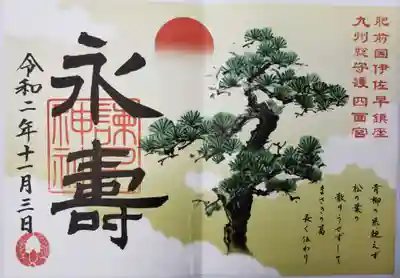 肥前国伊佐早鎮座
九州総守護四面宮
青柳の糸絶えず
松の葉の
散りうせずして
まさきの葛
長く伝わり
永壽
諫早神社
令和二年十一月三日